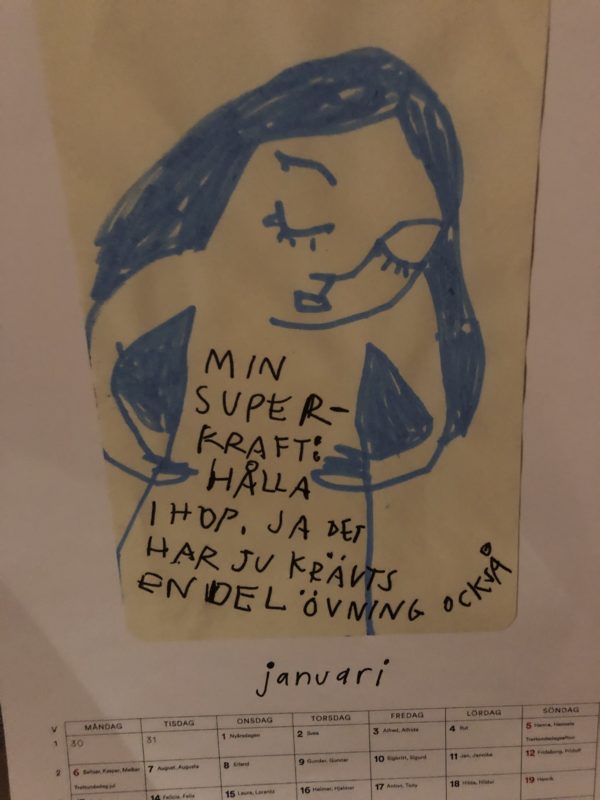 MIN
SUPER-
KRAFT:
HÅLLA
IHOP. JA DET
HAR JU KRÄVTS
EN DEL ÖVNING OCKSÅ
januari
V MÅNDAG TISDAG ONSDAG TORSDAG FREDAG LÖRDAG SÖNDAG
1 30 31 1 Nyårsdagen 2 Svea 3 Alfred, Alfrida 4 Rut 5 Hanna, Hannele
Trettondagsafton
2 6 Kasper, Melker 7 August, Augusta 8 Erland 9 Gunnar, Gunder 10 Sigbritt, Sigurd 11 Jan, Jannike 12 Fridolf
Trettondedag jul
14 Felicia, Felix 15 Laura, Lorentz 16 Hjalmar, Helmer 17 Anton, Tony 18 Hilda, Hildur 19 Henrik